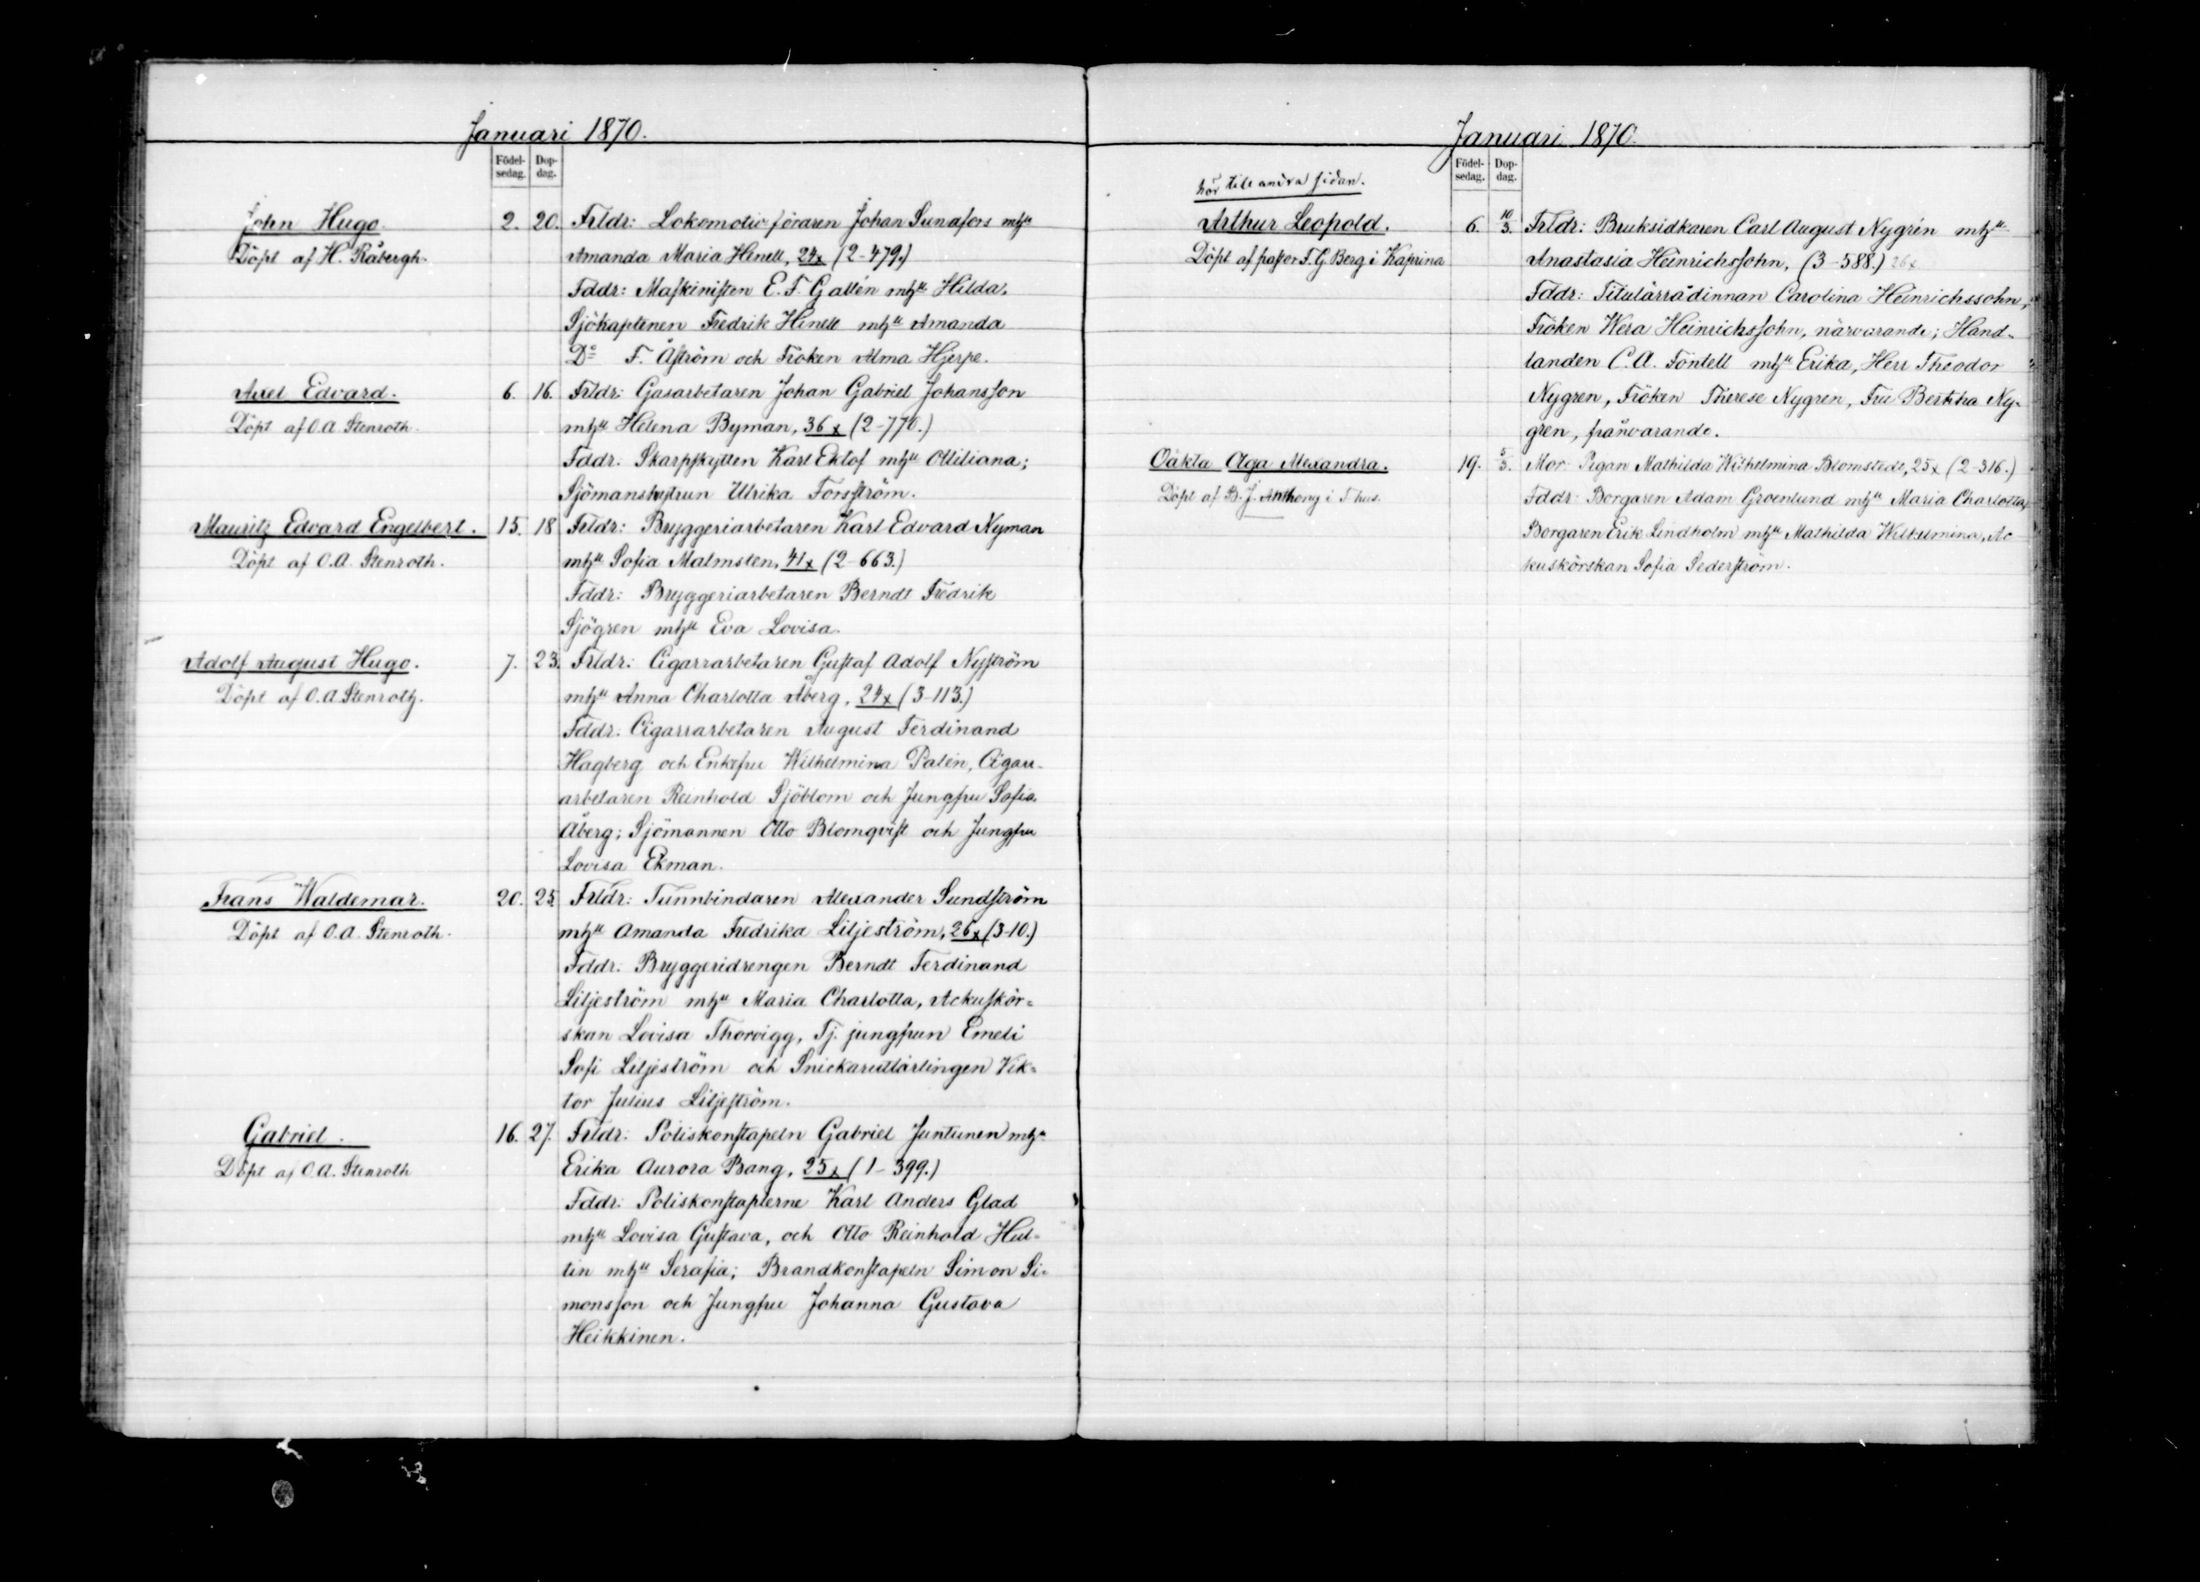 Januari 1870.
Födel-
sedag.
Dop-
dag.
John Hugo.
2. 20.
Frldr: Lokomotivföraren Johan Sunafors mhu
Döpt af H. Råbergh.
Amanda Maria Hinell, 24x (2-479.)
Fddr: Maskinisten E. F. Gallén mhu Hilda,
Sjökaptenen Fredrik Hinell mhu Amanda
Do F. Åström och Fröken Alma Hjerpe.
Axel Edvard.
6. 16.
Frldr: Gasarbetaren Johan Gabriel Johansson
Döpt af O.A. Stenroth.
mhu Helena Byman, 36x (2-770.)
Fddr: Skarpskytten Karl Eklof mhu Ottiliana;
Sjömanshustrun Ulrika Forsström.
Mauritz Edvard Engelbert.
15. 18
Frldr: Bryggeriarbetaren Karl Edvard Nyman
Döpt af O.A. Stenroth.
mhu Sofia Malmsten, 41x (2-663.)
Fddr: Bryggeriarbetaren Berndt Fredrik
Sjögren mhu Eva Lovisa.
Adolf August Hugo.
7. 23.
Frldr: Cigarrarbetaren Gustaf Adolf Nyström
Döpt af O.A. Stenroth.
mhu Anna Charlotta Åberg, 24x (3-113.)
Fddr: Cigarrarbetaren August Ferdinand
Hagberg och Enkefru Wilhelmina Palén, Cigarr-
arbetaren Reinhold Sjöblom och Jungfru Sofia
Åberg; Sjömannen Otto Blomqvist och Jungfru
Lovisa Ekman.
Frans Waldemar.
20. 25.
Frldr: Tunnbindaren Alexander Sundström
Döpt af O.A. Stenroth.
mhu Amanda Fredrika Liljeström, 26x (3-10.)
Fddr: Bryggeridrengen Berndt Ferdinand
Liljeström mhu Maria Charlotta, Ackuskör=
skan Lovisa Thorvigg, Tj. jungfrun Emeli
Sofi Liljeström och Snickarelärlingen Vik=
tor Julius Liljeström.
Gabriel.
16. 27.
Frldr: Poliskonstapeln Gabriel Juntunen mhu
Döpt af O.A. Stenroth
Erika Aurora Bang, 25x (1-399.)
Fddr: Poliskonstaplerne Karl Anders Glad
mhu Lovisa Gustava, och Otto Reinhold Hul=
tin mhu Serafia; Brandkonstapeln Simon Si=
monsson och Jungfru Johanna Gustava
Heikkinen.
Januari 1870.
Födel-
sedag.
Dop-
dag.
hör till andra sidan.
Arthur Leopold.
6. 10/3.
Frldr: Bruksidkaren Carl August Nygrén mhu
Döpt af pastor F. G. Berg i Kaprina
Anastasia Heinrichssohn, (3-588.) 26x
Fddr: Titulärrådinnan Carolina Heinrichssohn,
Fröken Wera Heinrichssohn, närvarande; Hand=
landen C. A. Föntell mhu Erika, Herr Theodor
Nygren, Fröken Therese Nygren, Fru Bertha Ny=
gren, frånvarande.
Oäkta Olga Alexandra.
19. 5/3.
Mor: Pigan Mathilda Wilhelmina Blomstedt, 25x (2-316.)
Döpt af B. J. Anthony i T hus.
Fddr: Borgaren Adam Groenlund mhu Maria Charlotta,
Borgaren Erik Lindholm mhu Mathilda Wilhelmina, Ac
kuskörskan Sofia Sederström.